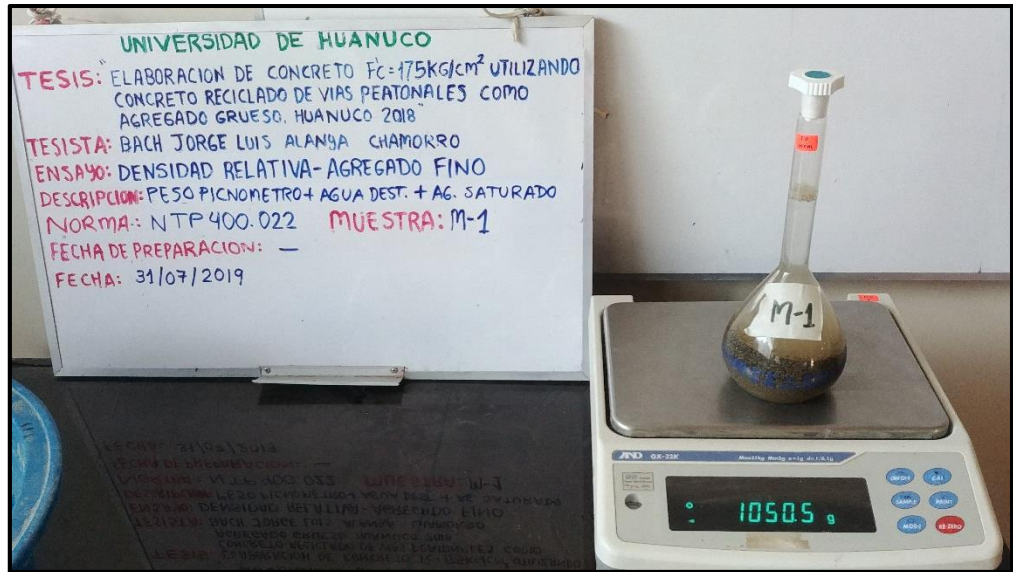 UNIVERSIDAD DE HUANUCO
TESIS: "ELABORACION DE CONCRETO F'C=175KG/CM² UTILIZANDO
CONCRETO RECICLADO DE VIAS PEATONALES COMO
AGREGADO GRUESO. HUANUCO 2018"
TESISTA: BACH JORGE LUIS ALANYA CHAMORRO
ENSAYO: DENSIDAD RELATIVA-AGREGADO FINO
DESCRIPCION: PESO PICNOMETRO + AGUA DEST. + AG. SATURADO
NORMA: NTP 400.022 MUESTRA: M-1
FECHA DE PREPARACION: —
FECHA: 31/07/2019
M-1
AND GX-32K
ON:OFF CAL
SAMPLE PRINT
MODE RE-ZERO
1050.5 g